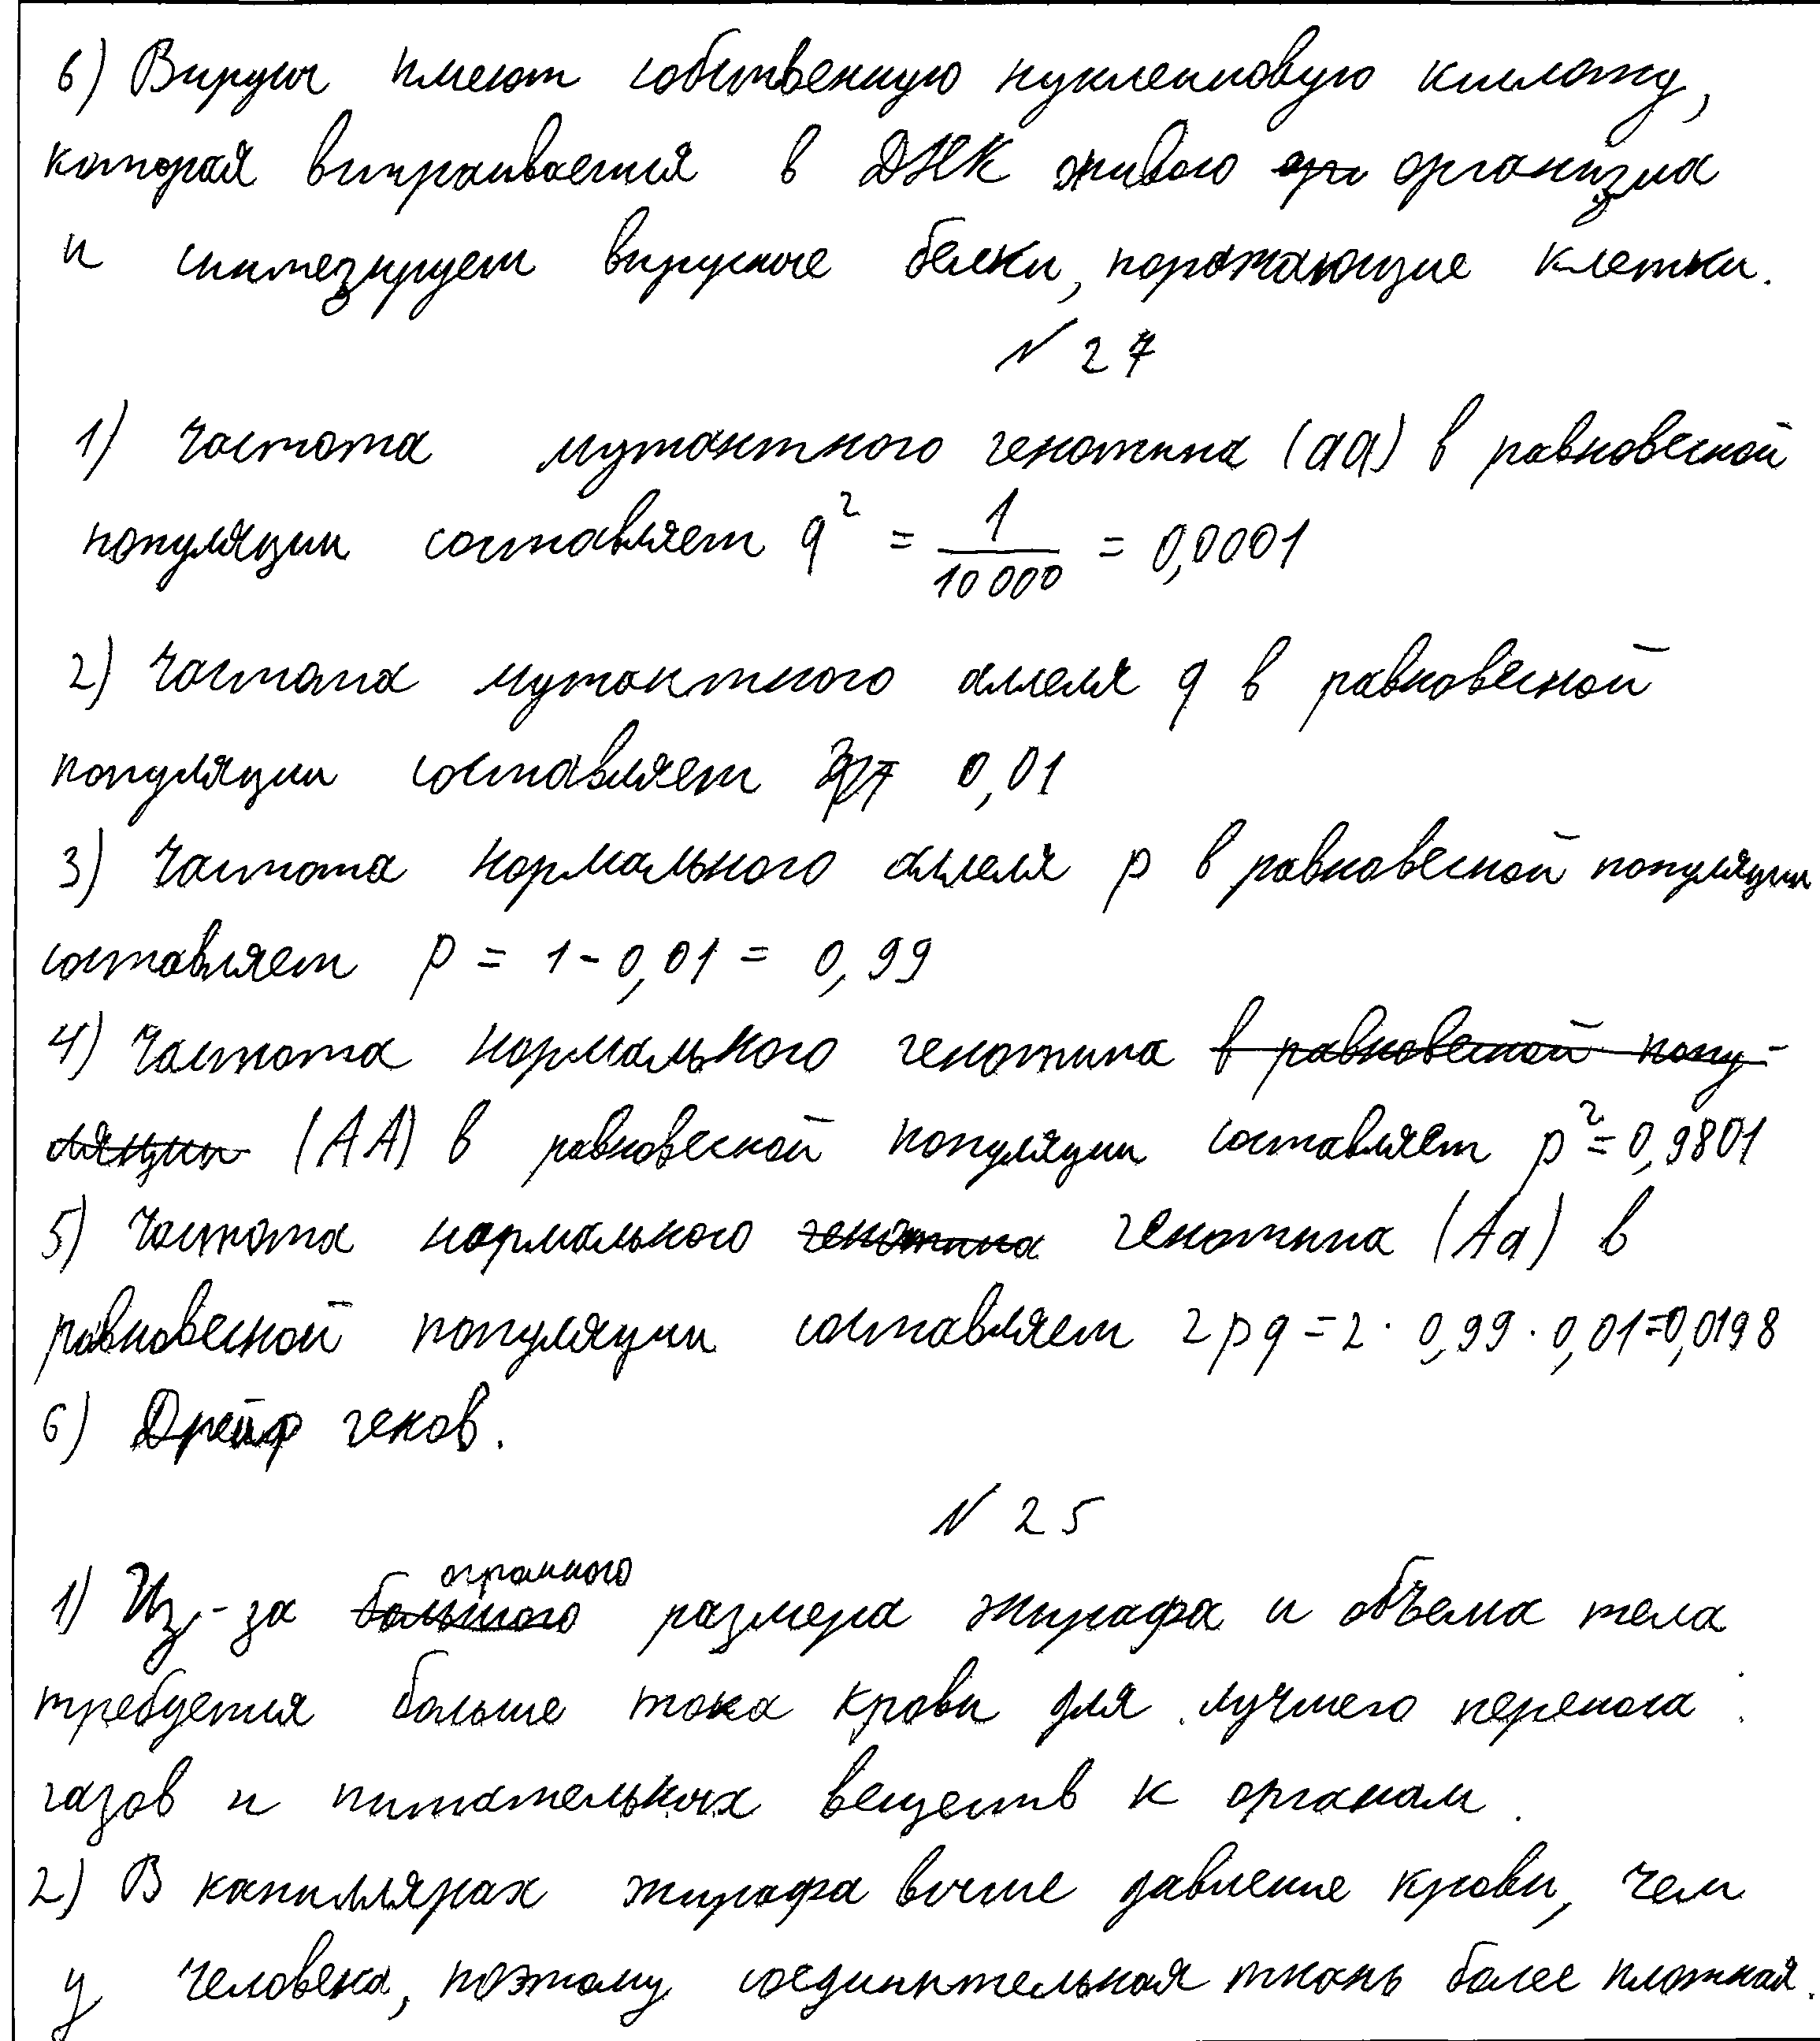 6) Вирусы имеют собственную нуклеиновую кислоту,
которая встраивается в ДНК живого организма
и синтезирует вирусные белки, поражающие клетки.
N 27
1) Частота мутантного генотипа (aa) в равновесной
популяции составляет q² = 1/10 000 = 0,0001
2) Частота мутантного аллеля q в равновесной
популяции составляет 0,01
3) Частота нормального аллеля p в равновесной популяции
составляет p = 1 - 0,01 = 0,99
4) Частота нормального генотипа в равновесной попу-
ляции (AA) в равновесной популяции составляет p² = 0,9801
5) Частота нормального генотипа генотипа (Aa) в
равновесной популяции составляет 2pq = 2 · 0,99 · 0,01 = 0,0198
6) Дрейф генов.
N 25
огромного
1) Из-за большого размера жирафа и объема тела
требуется больше тока крови для лучшего переноса
газов и питательных веществ к органам.
2) В капиллярах жирафа выше давление крови, чем
у человека, поэтому соединительная ткань более плотная.